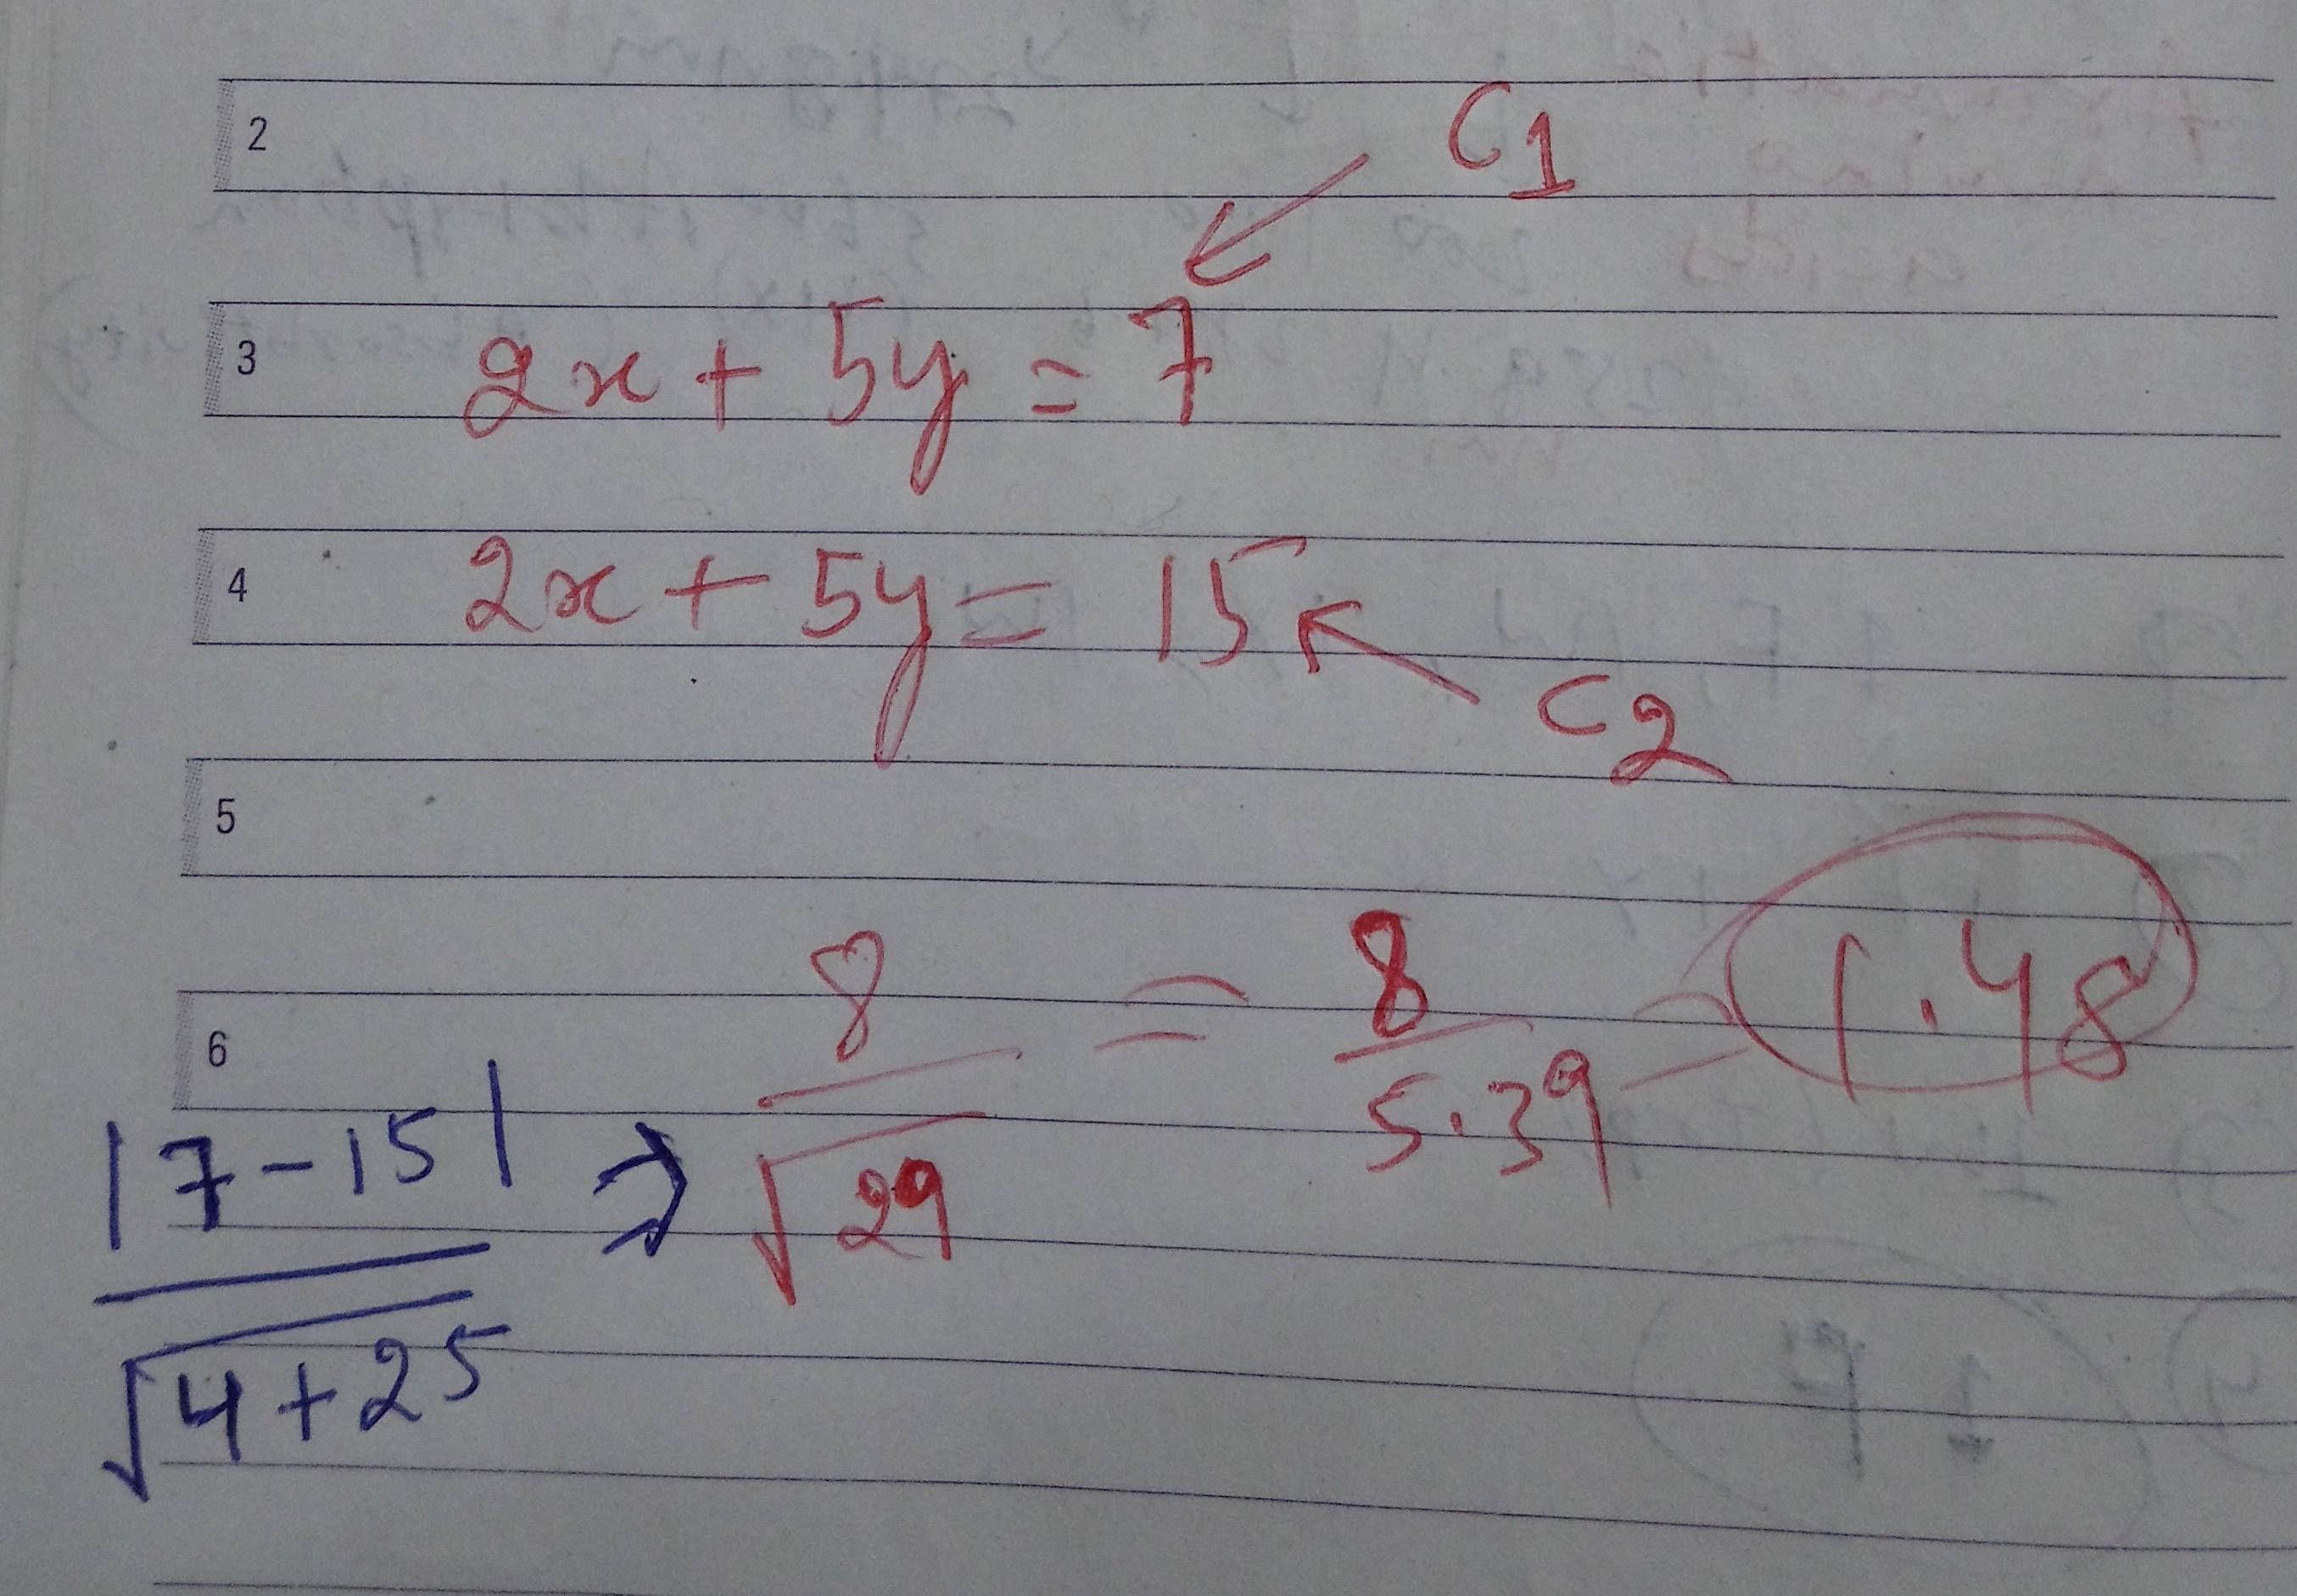 2
C1
3 2x + 5y = 7
4 2x + 5y = 15
C2
5
6
|7-15| / √4+25 ⇒ 8/√29 = 8/5.39 = 1.48